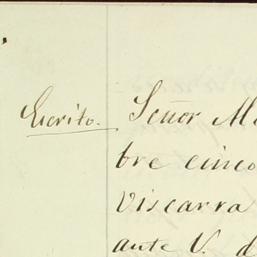 Escrito. Señor
bre cinco
Viscarra
ante V. d